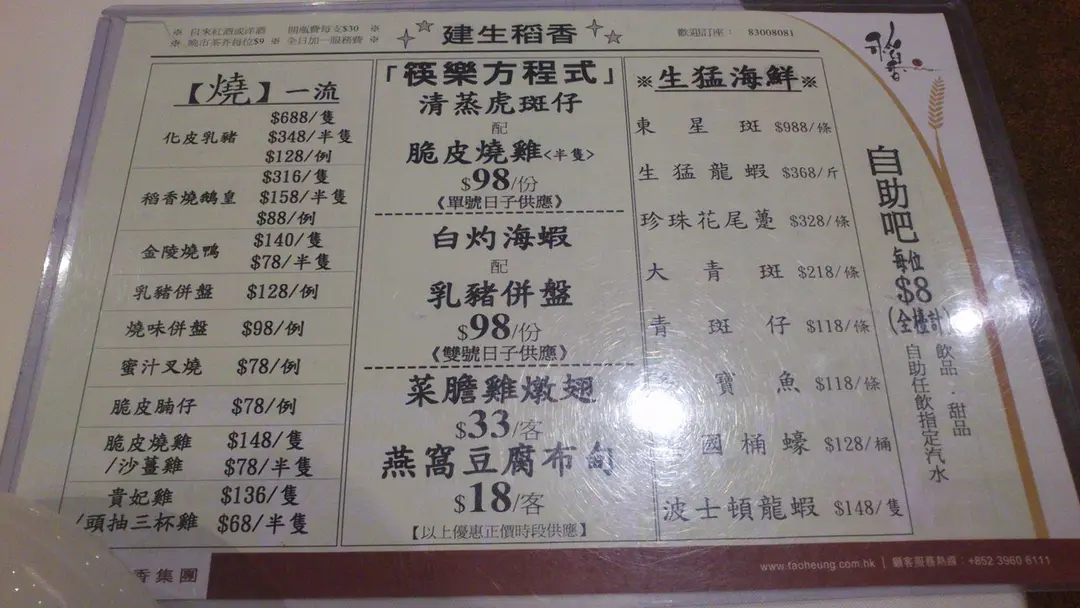 ※ 自來紅酒或洋酒 開瓶費每支$30 ※
※ 晚市茶芥每位$9 ※ 全日加一服務費 ※
建生稻香
歡迎訂座： 83008081
稻香
【燒】一流
化皮乳豬
$688/隻
$348/半隻
$128/例
稻香燒鵝皇
$316/隻
$158/半隻
$88/例
金陵燒鴨
$140/隻
$78/半隻
乳豬併盤 $128/例
燒味併盤 $98/例
蜜汁叉燒 $78/例
脆皮腩仔 $78/例
脆皮燒雞 $148/隻
/沙薑雞 $78/半隻
貴妃雞 $136/隻
/頭抽三杯雞 $68/半隻
「筷樂方程式」
清蒸虎斑仔
配
脆皮燒雞<半隻>
$98/份
《單號日子供應》
白灼海蝦
配
乳豬併盤
$98/份
《雙號日子供應》
菜膽雞燉翅
$33/客
燕窩豆腐布甸
$18/客
【以上優惠正價時段供應】
※生猛海鮮※
東星斑 $988/條
生猛龍蝦 $368/斤
珍珠花尾躉 $328/條
大青斑 $218/條
青斑仔 $118/條
寶魚 $118/條
國桶蠔 $128/桶
波士頓龍蝦 $148/隻
自助吧
每位
$8
(全檯計)
飲品．甜品
自助任飲指定汽水
香集團
www.taoheung.com.hk | 顧客服務熱線：+852 3960 6111